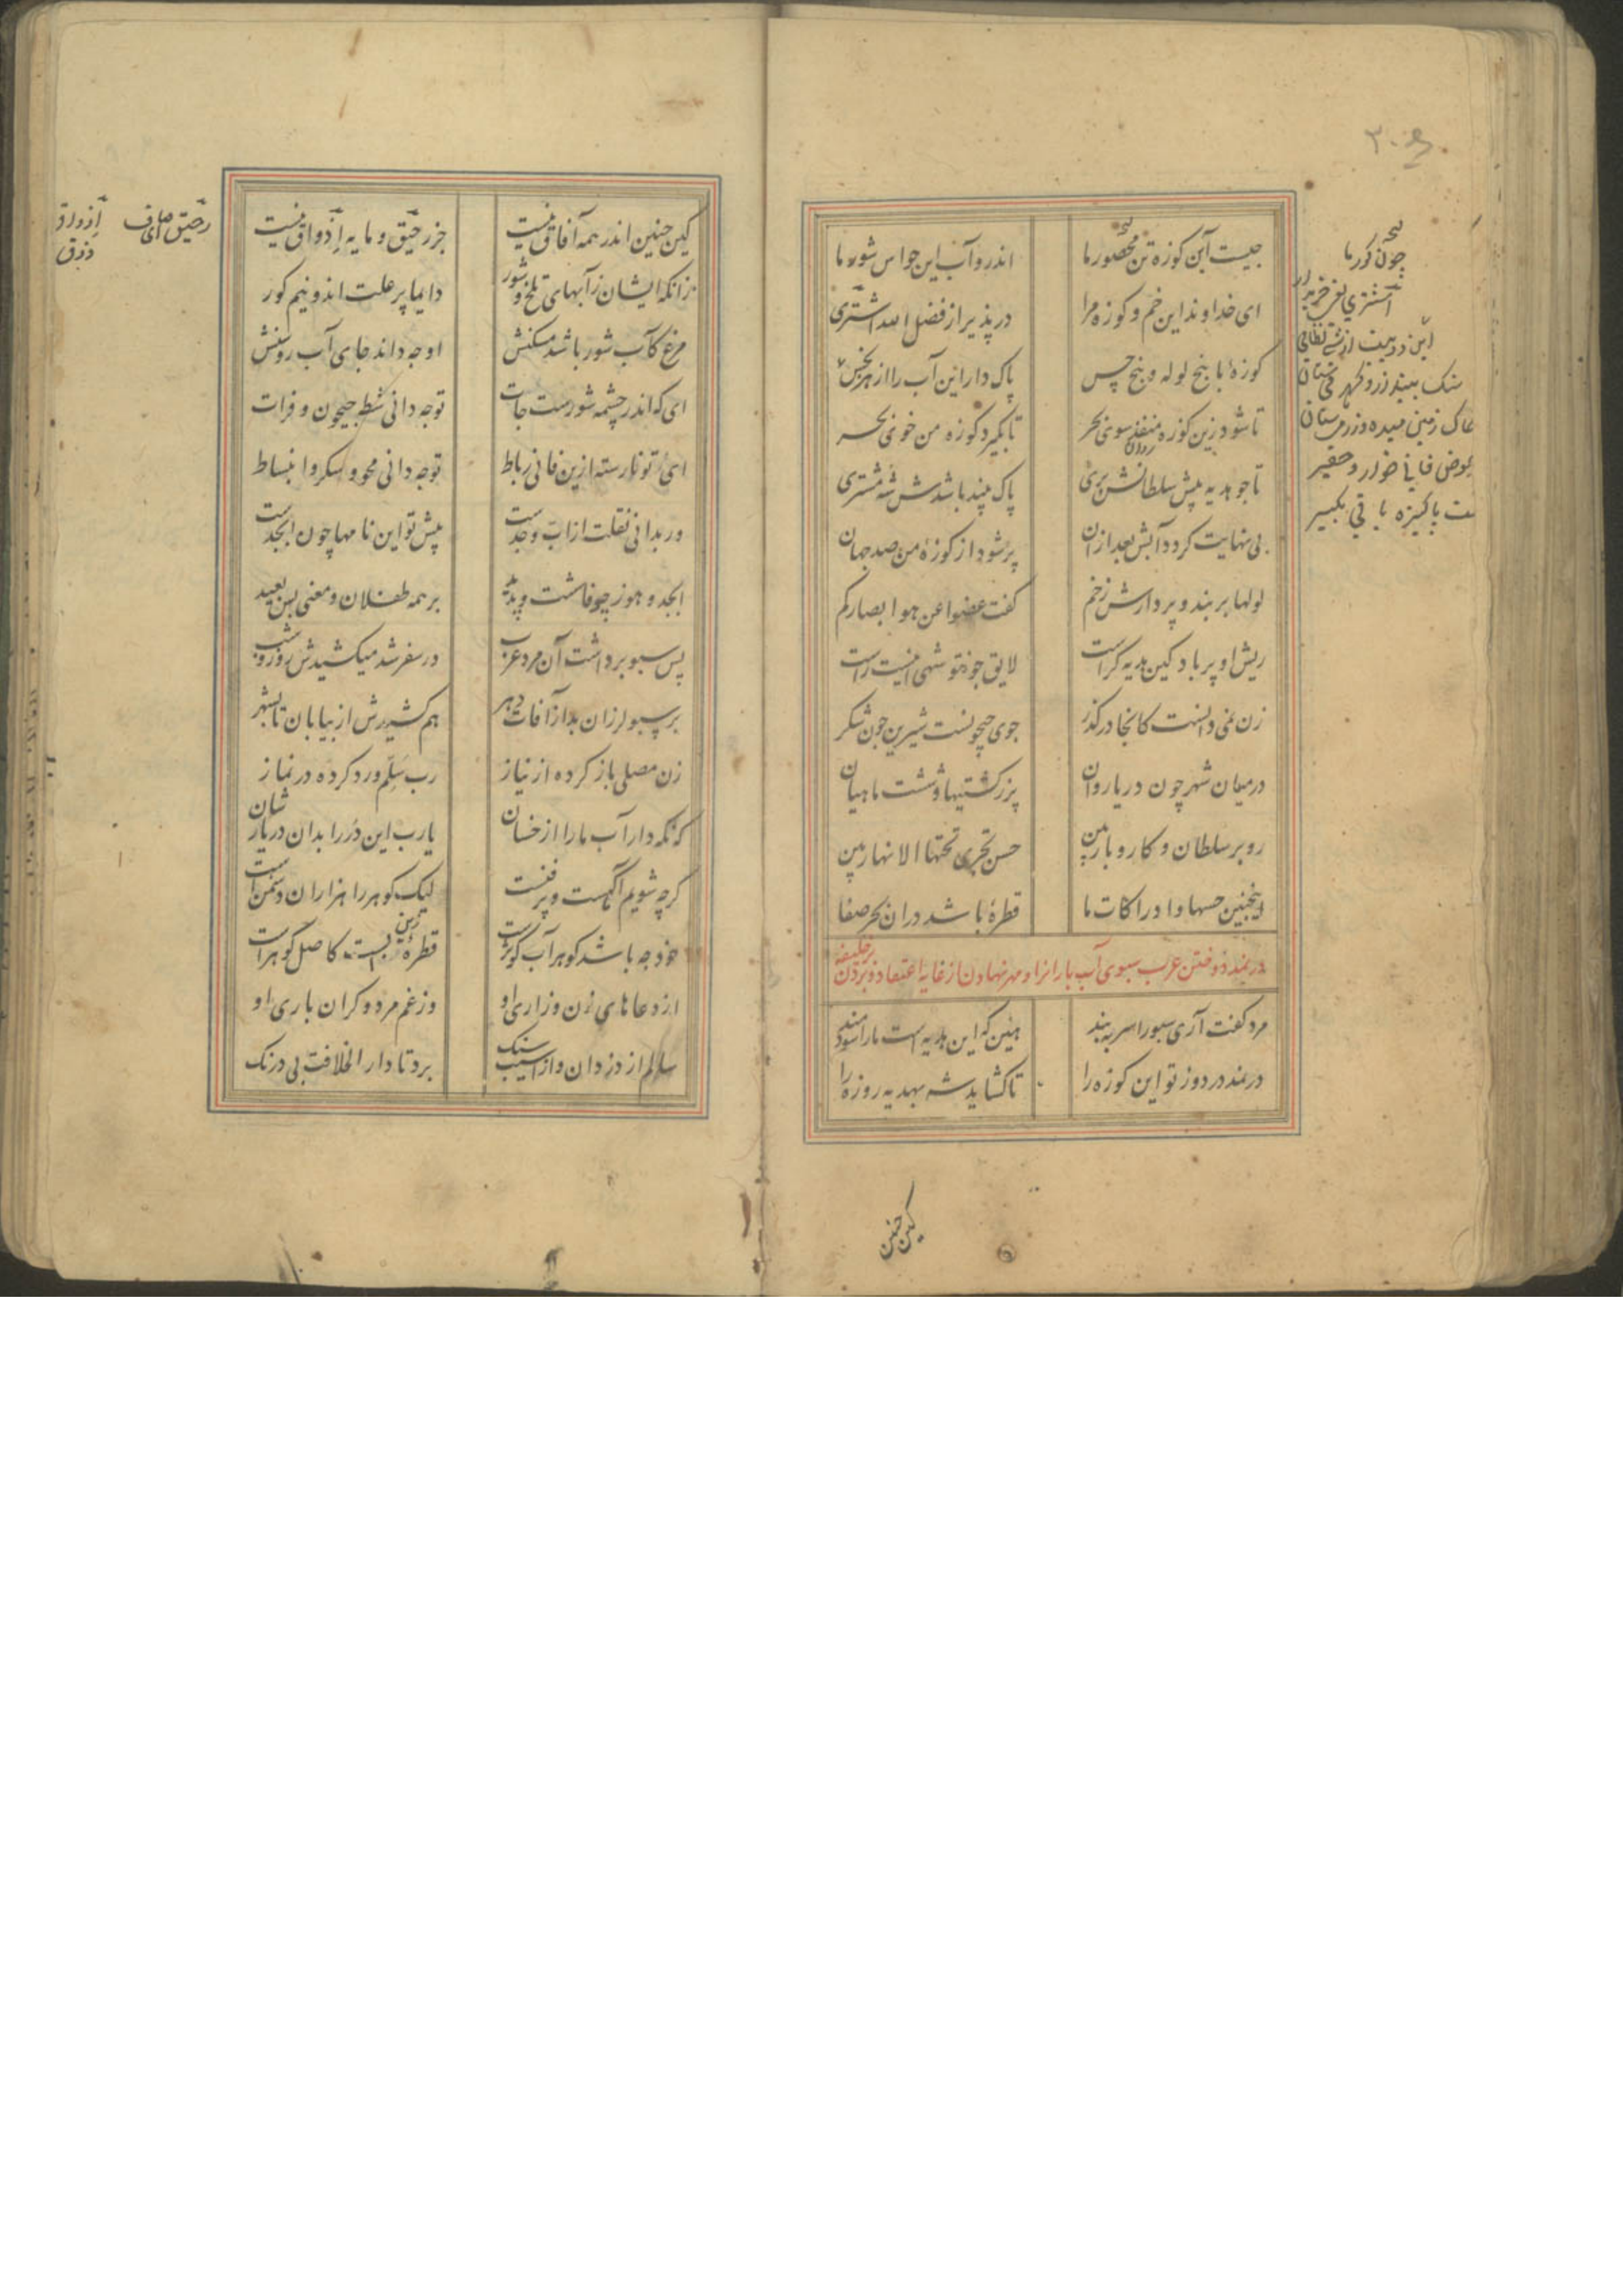 ۳۰
چیست آن کوزه تن محصور ما
اندرو آب این حواس شور ما
ای خداوند این خم و کوزه مرا
در پذیر از فضل الله اشتری
کوزهٔ با پنج لوله و پنج حس
پاک دار این آب را از هر نجس
تا شود زین کوزه منفذ سوی بحر
تا بگیرد کوزه من خوی بحر
تا چو هدیه پیش سلطانش بری
پاک بیند باشدش شه مشتری
بی نهایت کردد آبش بعد ازان
پر شود از کوزهٔ من صد جهان
لولها بر بند و پر دارش ز خم
کفت غضوا عن هوا ابصارکم
ریش او پر باد کین هدیه کراست
لایق چونتو شهی اینست راست
زن نمی دانست کانجا در کذر
جوی جیحونست شیرین چون شکر
در میان شهر چون دریا روان
پر ز کشتیها و شست ماهیان
رو بر سلطان و کار و بار بین
حس تجری تحتها الانهار بین
اینچنین حسها و ادراکات ما
قطرهٔ باشد دران بحر صفا
در نمد دوختن عرب سبوی آب بارانرا و مهر نهادن از غایة اعتقاد و بردن بر خلیفه
مرد کفت آری سبو را سر ببند
هین که این هدیه است ما را سودمند
در نمد در دوز تو این کوزه را
تا کشاید شه بهدیه روزه را
چون کوز ما
اشتری یعنی خریدار
این دو بیت از شیخ نظامی
سنک بیند زر و کهر می ستان
خاک زمین میده و زر می ستان
بعوض فانی خوار و حقیر
باکیزه باقی بکیر
کین چنین
کین چنین اندر همه آفاق نیست
جز رحیق و مایه اذواق نیست
زانکه ایشان ز آبهای تلخ و شور
دایما پر علت اند و نیم کور
مرغ کآب شور باشد مسکنش
او چه داند جای آب روشنش
ای که اندر چشمه شورست جات
تو چه دانی شط جیحون و فرات
ای تو نارسته ازین فانی رباط
تو چه دانی محو و سکر و انبساط
ور بدانی نقلت از اب وجدست
پیش تو این نامها چون ابجدست
ابجد و هوز چو فاشست و پدید
بر همه طفلان و معنی بس بعید
پس سبو برداشت آن مرد عرب
در سفر شد میکشیدش روز و شب
بر سبو لرزان بد از آفات دهر
هم کشیدش از بیابان تا بشهر
زن مصلی باز کرده از نیاز
رب سلم ورد کرده در نماز
که نکه دار آب ما را از خسان
یارب این در را بدان دریا رسان
کرچه شویم آکهست و پر فنست
لیک کوهر را هزاران دشمنست
خود چه باشد کوهر آب کوثرست
قطرهٔ زینست کاصل کوهرست
از دعاهای زن و زاری او
وز غم مرد و کران باری او
سالم از دزدان و از آسیب سنک
برد تا دار الخلافت بی درنک
رحیق می صاف
اذواق
ذوق